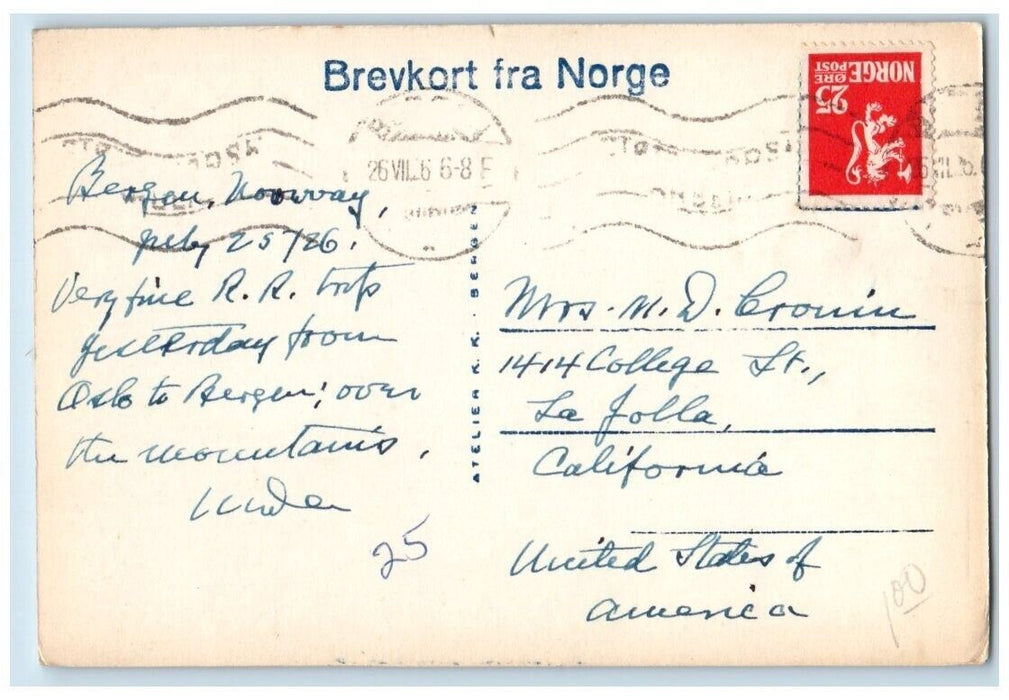 Brevkort fra Norge
NORGE
POST
25 ØRE
26 VII. 6 6-8 E
Bergen, Norway,
July 25/36.
Very fine R. R. trip
yesterday from
Oslo to Bergen; over
the mountains.
25
ATELIER K. K. BERGEN
Mrs. M. D. Cronin
1414 College St.,
La Jolla,
California
United States of
America
1.00